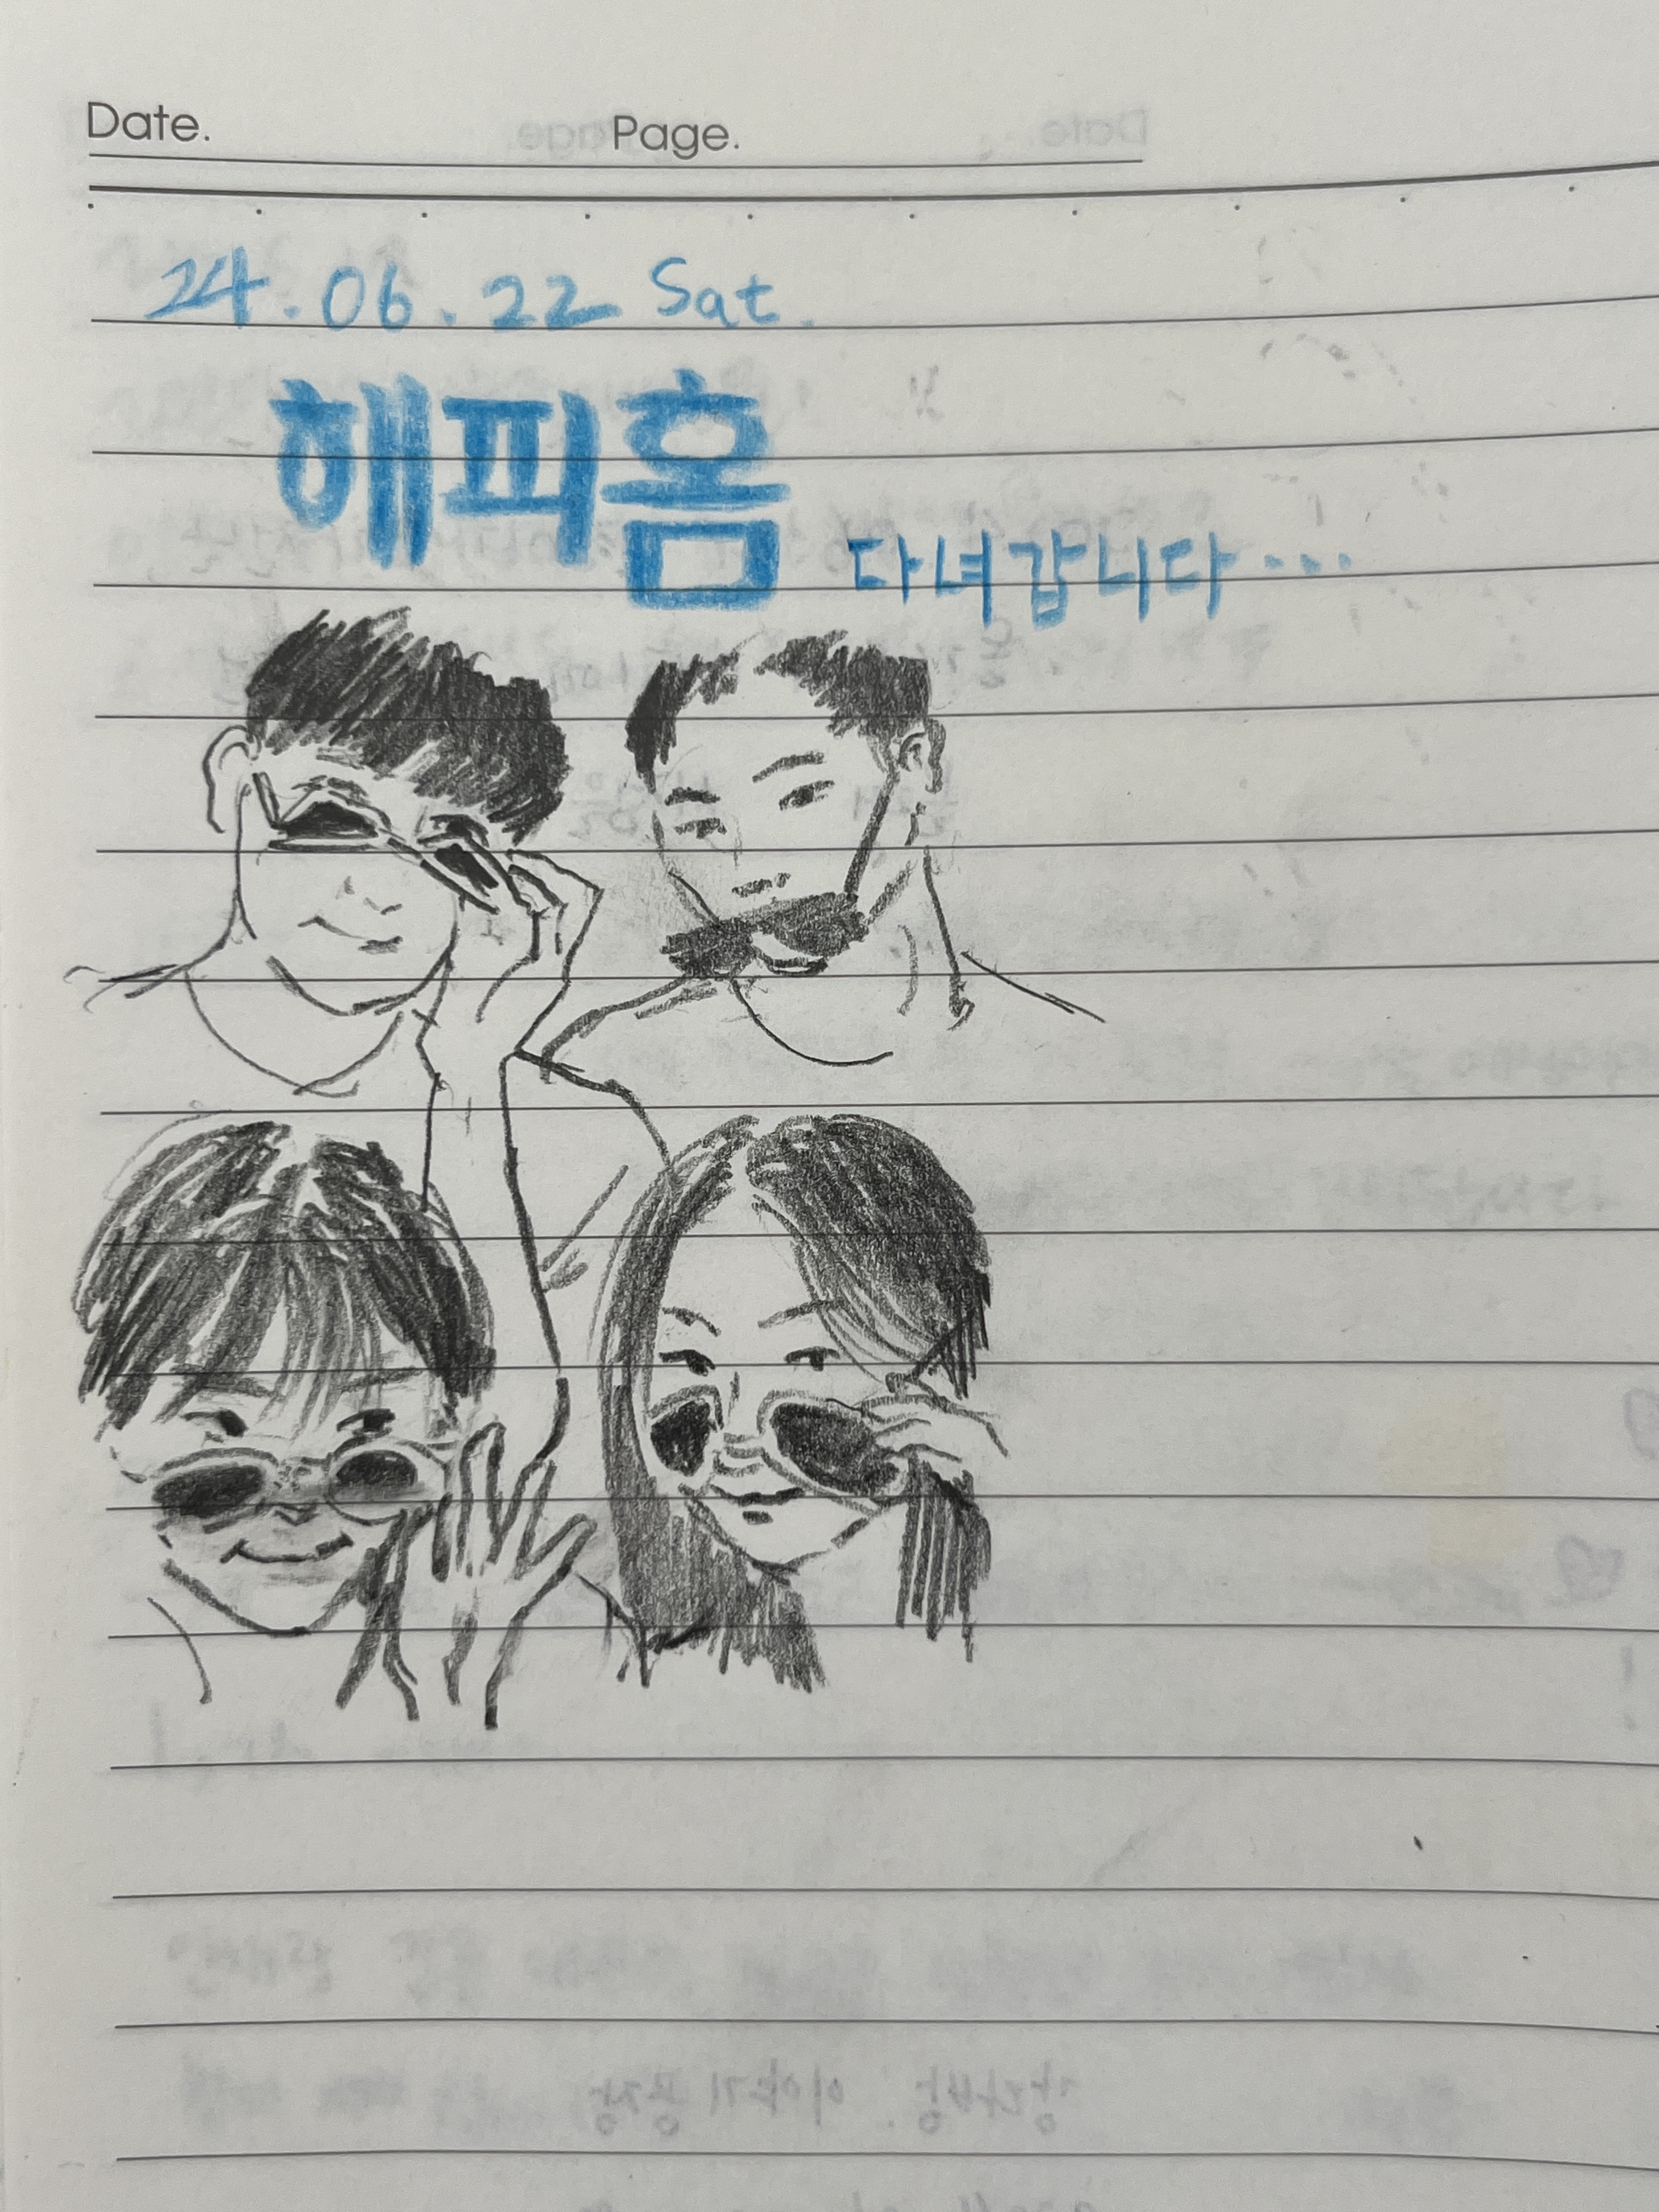 Date. Page.
24.06.22 Sat.
해피홈 다녀갑니다...